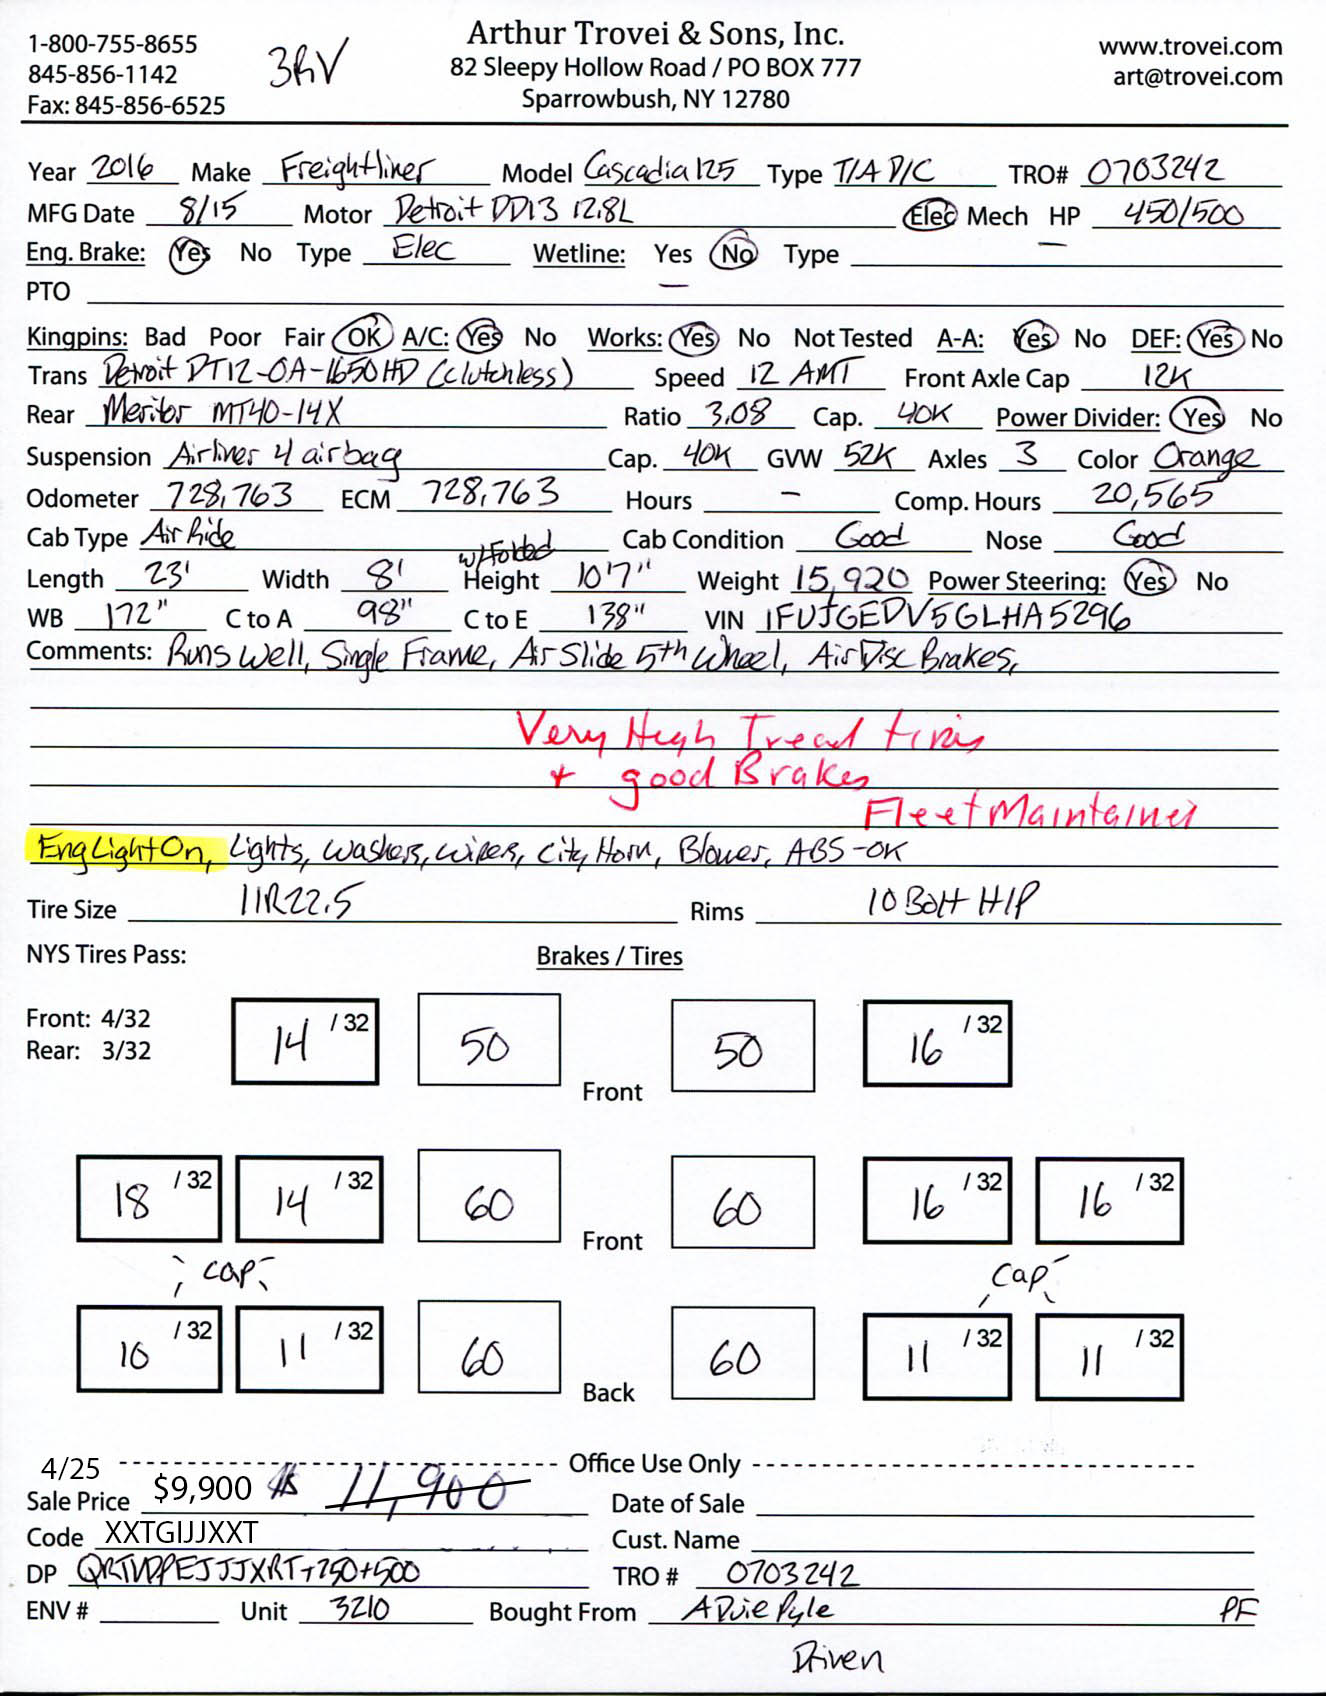 1-800-755-8655
845-856-1142
Fax: 845-856-6525
3RV
Arthur Trovei & Sons, Inc.
82 Sleepy Hollow Road / PO BOX 777
Sparrowbush, NY 12780
www.trovei.com
art@trovei.com
Year 2016 Make Freightliner Model Cascadia 125 Type T/A D/C TRO# 0703242
MFG Date 8/15 Motor Detroit DD13 12.8L Elec Mech HP 450/500
Eng. Brake: Yes No Type Elec Wetline: Yes No Type —
PTO —
Kingpins: Bad Poor Fair OK A/C: Yes No Works: Yes No Not Tested A-A: Yes No DEF: Yes No
Trans Detroit DT12-OA-1650HD (clutchless) Speed 12 AMT Front Axle Cap 12K
Rear Meritor MT40-14X Ratio 3.08 Cap. 40K Power Divider: Yes No
Suspension Airliner 4 airbag Cap. 40K GVW 52K Axles 3 Color Orange
Odometer 728,763 ECM 728,763 Hours – Comp. Hours 20,565
Cab Type Air Ride Cab Condition Good Nose Good
w/Folded
Length 23' Width 8' Height 10'7" Weight 15,920 Power Steering: Yes No
WB 172" C to A 98" C to E 138" VIN 1FUJGEDV5GLHA5296
Comments: Runs Well, Single Frame, Air Slide 5th Wheel, Air Disc Brakes,
Very High Tread tires
+ good Brakes
Fleet Maintained
Eng Light On, Lights, washers, wipers, city Horn, Blower, ABS-OK
Tire Size 11R22.5 Rims 10 Bolt H/P
NYS Tires Pass: Brakes / Tires
Front: 4/32
Rear: 3/32
14 /32 50 Front 50 16 /32
18 /32 14 /32 60 Front 60 16 /32 16 /32
cap cap
10 /32 11 /32 60 Back 60 11 /32 11 /32
4/25 Office Use Only
Sale Price $9,900 $ 11,900 Date of Sale
Code XXTGIJJXXT Cust. Name
DP +750+500 TRO # 0703242
ENV # Unit 3210 Bought From A Duie Pyle PF
Driven